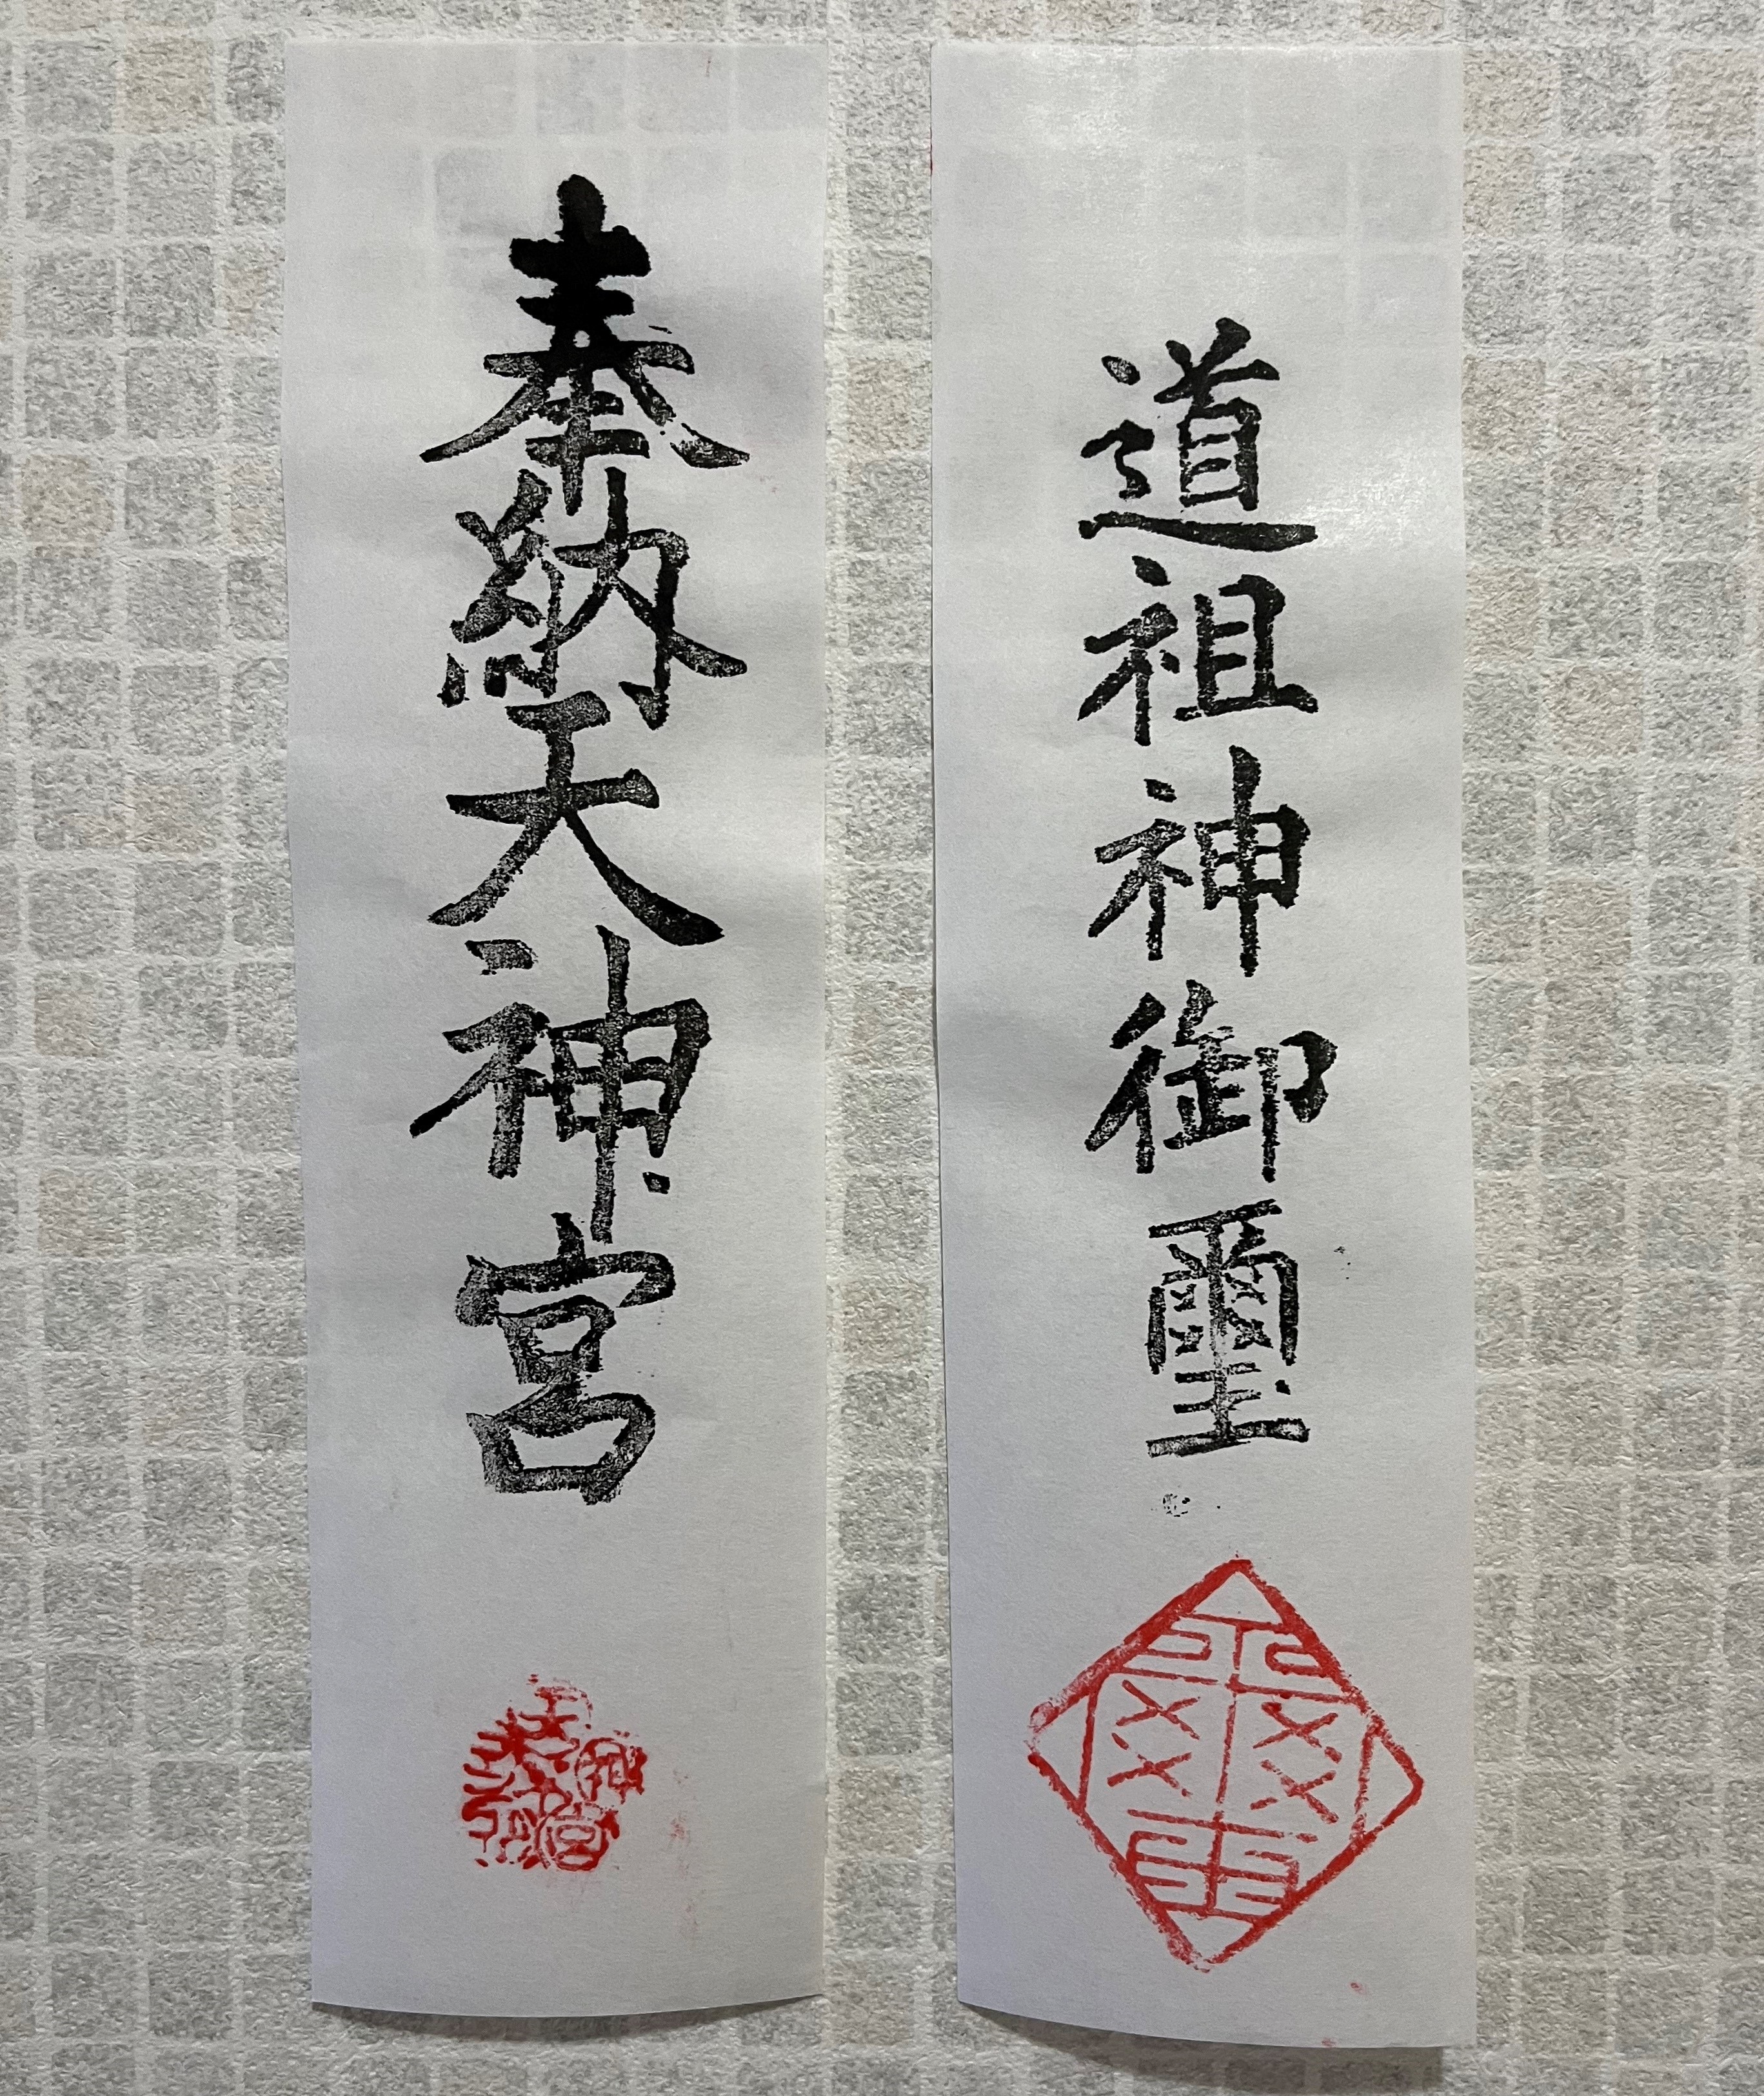 道祖神御璽
奉納天神宮